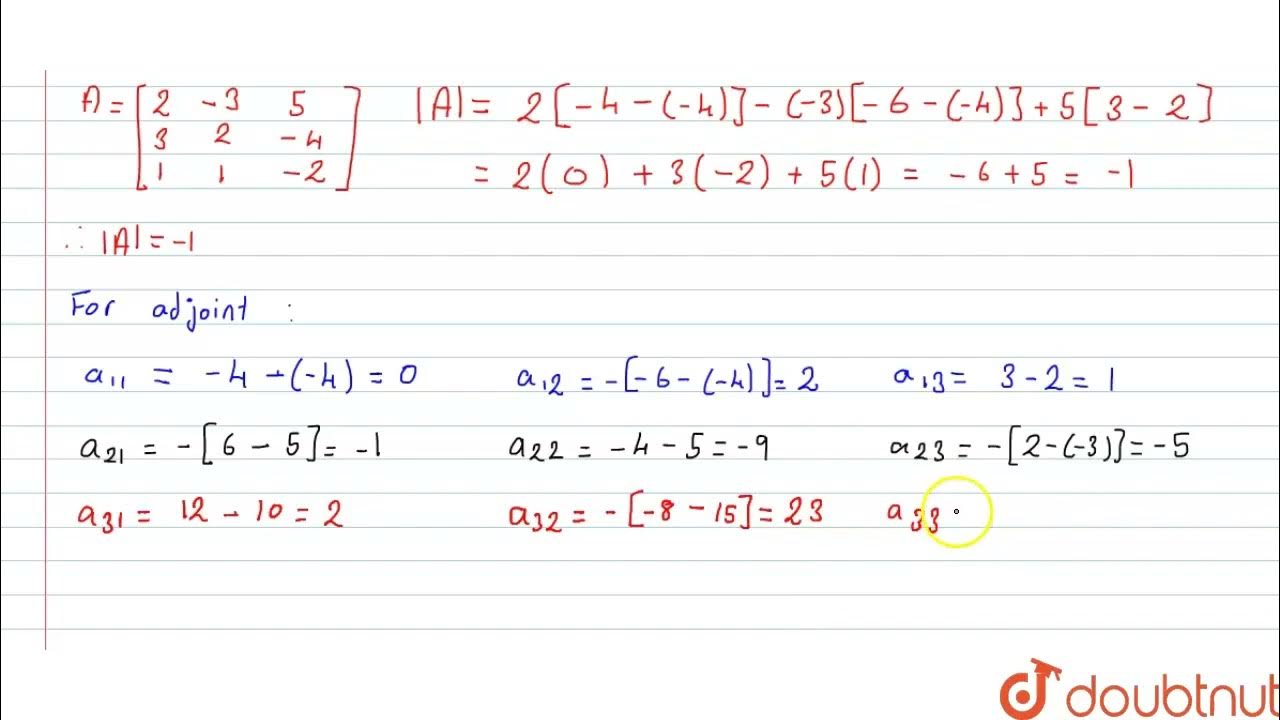 A = [ 2 -3 5    |A| = 2[-4-(-4)] - (-3)[-6-(-4)] + 5[3-2]
3 2 -4
1 1 -2 ]    = 2(0) + 3(-2) + 5(1) = -6+5 = -1
∴ |A| = -1
For adjoint :
a11 = -4-(-4) = 0    a12 = -[-6-(-4)] = 2    a13 = 3-2 = 1
a21 = -[6-5] = -1    a22 = -4-5 = -9    a23 = -[2-(-3)] = -5
a31 = 12-10 = 2    a32 = -[-8-15] = 23    a33
doubtnut